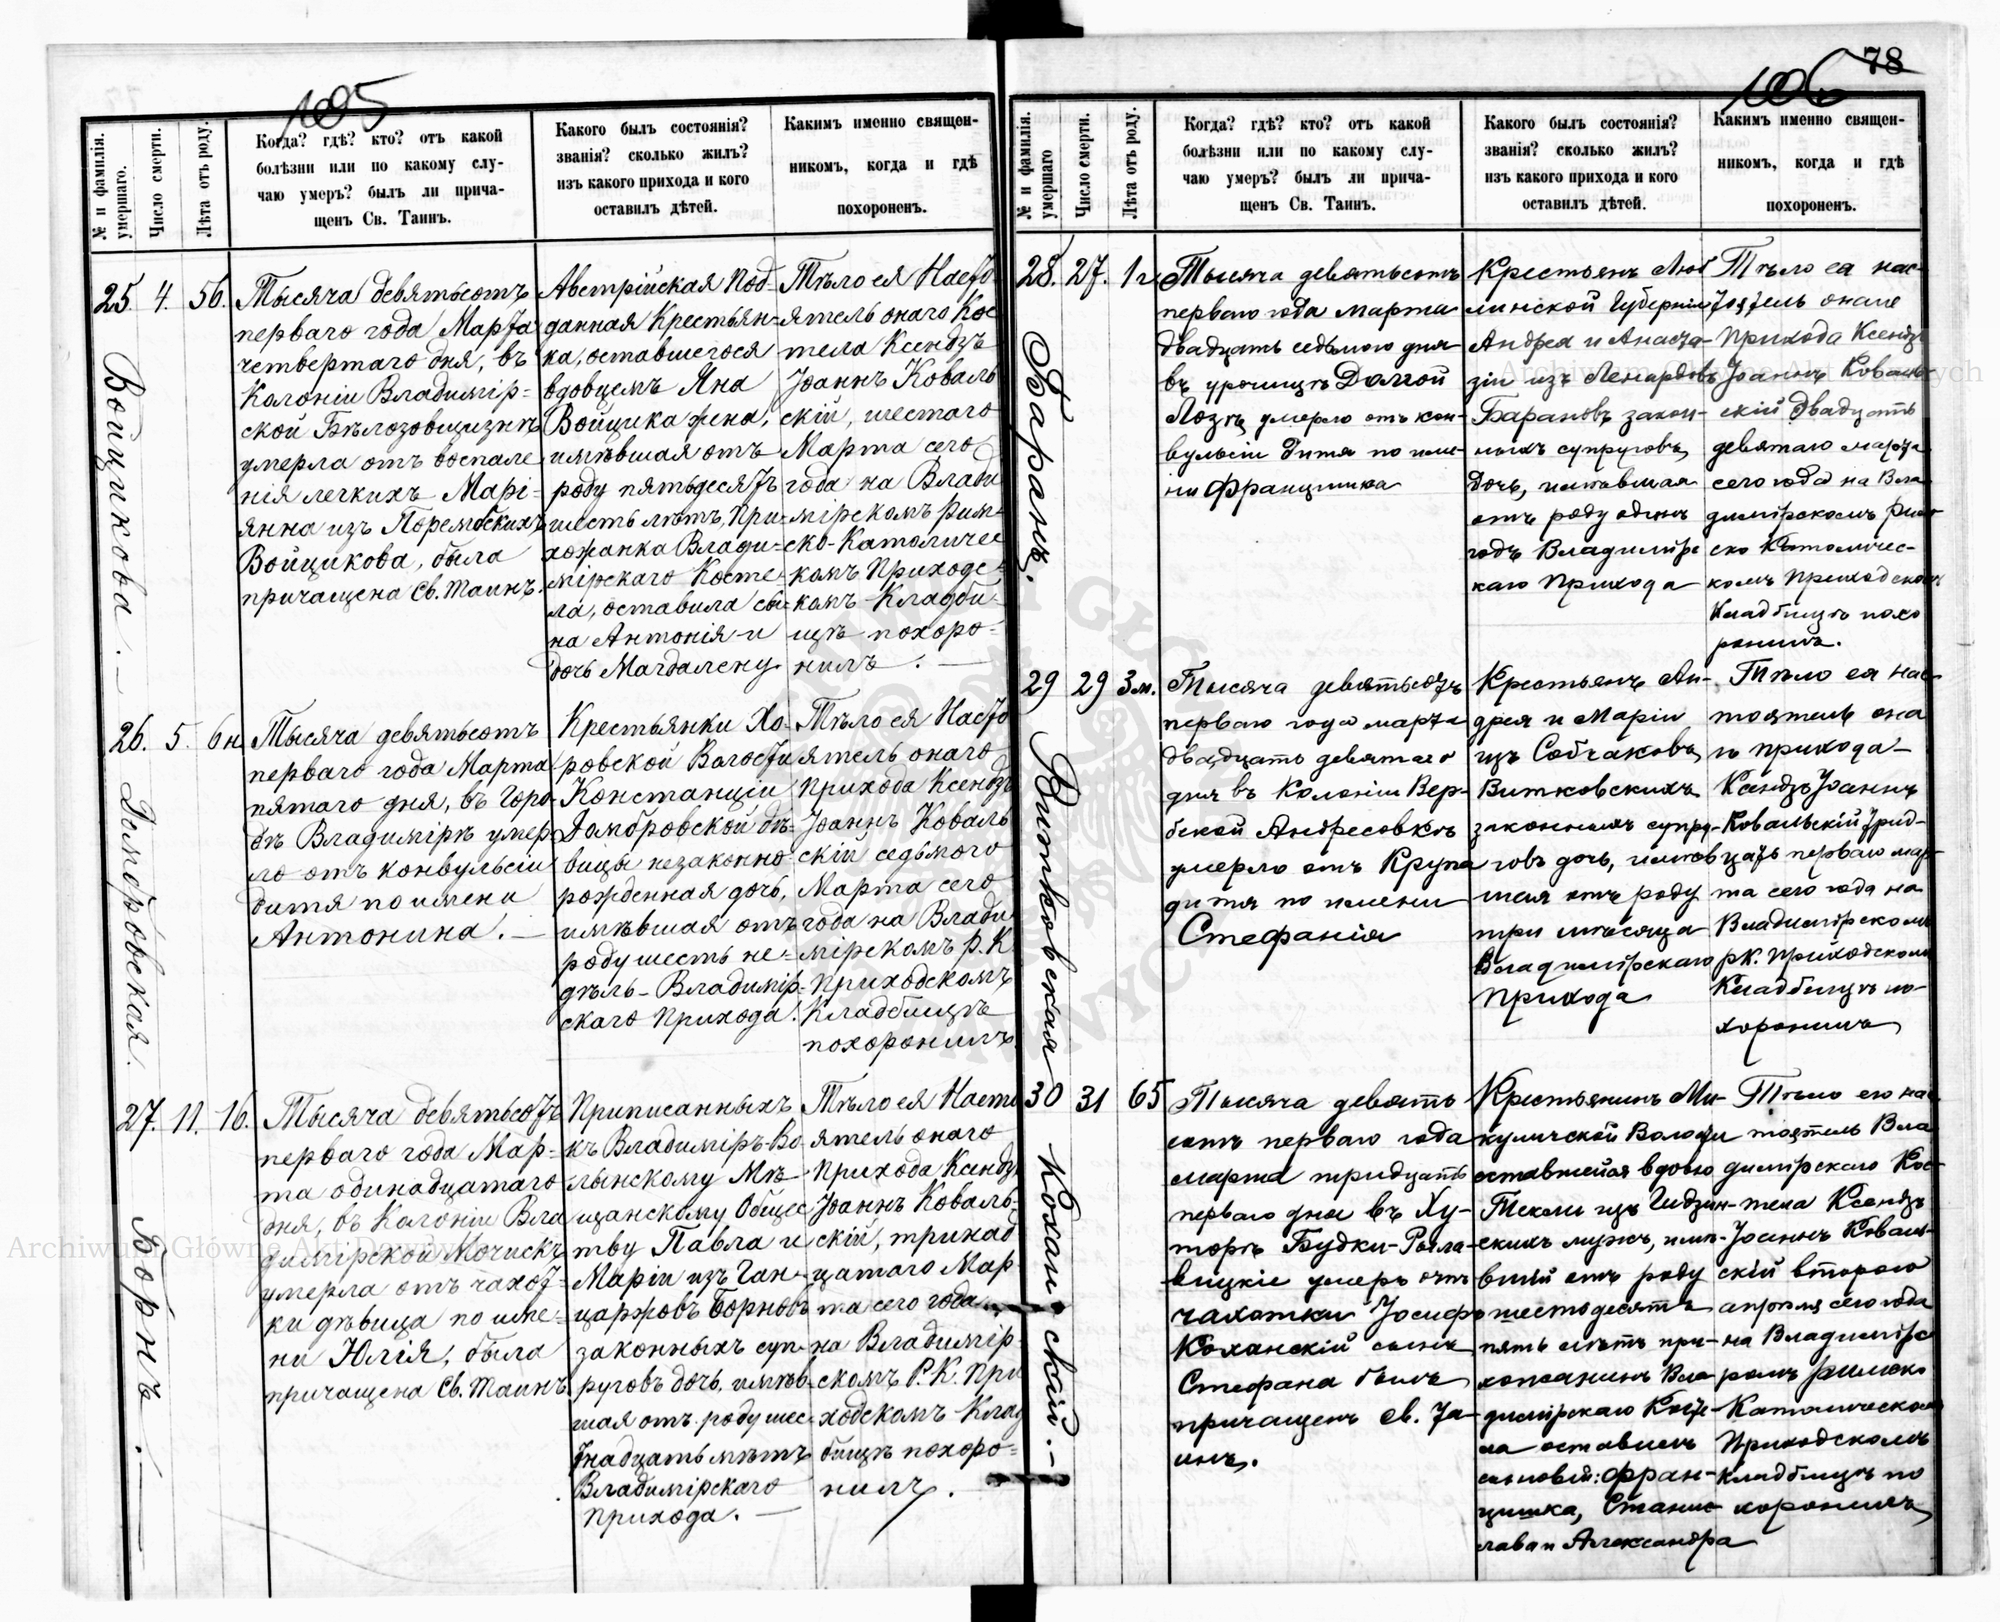 1005
№ и фамилія умершаго.
Число смерти.
Лѣта отъ роду.
Когда? гдѣ? кто? отъ какой
болѣзни или по какому слу-
чаю умеръ? былъ ли прича-
щенъ Св. Таинъ.
Какого былъ состоянія?
званія? сколько жилъ?
изъ какого прихода и кого
оставилъ дѣтей.
Какимъ именно священ-
никомъ, когда и гдѣ
похороненъ.
25. 4. 56.
Войцикова. —
Тысяча девятьсотъ
перваго года Марта
четвертаго дня, въ
Колоніи Владимір-
ской Бѣлозовщизнѣ
умерла отъ воспале
нія легкихъ Марі-
янна изъ Порембскихъ
Войцикова, была
причащена Св. Таинъ.
Австрійская Под-
данная Крестьян-
ка, оставшегося
вдовцемъ Яна
Войцика жена,
имѣвшая отъ
роду пятьдесятъ
шесть лѣтъ, При-
хожанка Влади-
мірскаго Косте-
ла, оставила сы-
на Антонія и
дочь Магдалену.
Тѣло ея Насто-
ятель онаго Кос
тела Ксендзъ
Іоаннъ Коваль
скій, шестаго
Марта сего
года на Влади
мірскомъ Рим-
ско-Католичес
комъ Приходс-
комъ Кладби-
щѣ похоро-
нилъ. —
26. 5. 6 н.
Домбровская.
Тысяча девятьсотъ
перваго года Марта
пятаго дня, въ Горо-
дѣ Владимірѣ умер-
ло отъ конвульсіи
дитя по имени
Антонина. —
Крестьянки Хо-
ровской Волости
Констанціи
Домбровской дѣ-
вицы незаконно
рожденная дочь,
имѣвшая отъ
роду шесть не-
дѣль — Владимір-
скаго Прихода.
Тѣло ея Насто
ятель онаго
Прихода Ксендзъ
Іоаннъ Коваль
скій седьмого
Марта сего
года на Влади
мірскомъ р. К.
Приходскомъ
Кладбищѣ
похоронилъ.
27. 11. 16.
Борнъ. —
Тысяча девятьсотъ
перваго года Мар-
та одинадцатаго
дня, въ Колоніи Вла
димірской Мочискѣ
умерла отъ чахот-
ки дѣвица по име-
ни Юлія, была
причащена Св. Таинъ.
Приписанныхъ
къ Владиміръ-Во
лынскому Мѣ-
щанскому Общес
тву Павла и
Маріи изъ Ган-
царжовъ Борновъ
законныхъ суп-
руговъ дочь, имѣв-
шая отъ роду шес
тнадцать лѣтъ
Владимірскаго
Прихода. —
Тѣло ея Насто
ятель онаго
Прихода Ксендзъ
Іоаннъ Коваль-
скій, тринад
цатаго Мар
та сего года
на Владимір-
скомъ Р. К. При
ходскомъ Клад
бищѣ похоро-
нилъ.
1006
78
№ и фамилія умершаго
Число смерти.
Лѣта отъ роду.
Когда? гдѣ? кто? отъ какой
болѣзни или по какому слу-
чаю умеръ? былъ ли прича-
щенъ Св. Таинъ.
Какого былъ состоянія?
званія? сколько жилъ?
изъ какого прихода и кого
оставилъ дѣтей.
Какимъ именно священ-
никомъ, когда и гдѣ
похороненъ.
28. 27. 1 г.
Баранъ.
Тысяча девятьсотъ
перваго года марта
двадцать седьмого дня
въ урочищѣ Долгой
Лозѣ, умерло отъ кон-
вульсіи дитя по име-
ни Францишка
Крестьянъ Люб
линской Губерніи
Андрея и Анаста-
зіи изъ Ленардовъ
Барановъ закон-
ныхъ супруговъ,
дочь, имѣвшая
отъ роду одинъ
годъ Владимірс
каго Прихода
Тѣло ея нас-
тоятель онаго
Прихода Ксендзъ
Іоаннъ Коваль-
скій двадцать
девятаго марта
сего года на Вла
димірскомъ Рим
ско Католичес-
комъ Приходскомъ
Кладбищѣ похо
ронилъ.
29 29 3 м.
Витковская
Тысяча девятьсотъ
перваго года марта
двадцать девятаго
дня въ Колоніи Вер-
бской Андресовкѣ
умерло отъ Крупа
дитя по имени
Стефанія
Крестьянъ Ан-
дрея и Маріи
изъ Собчаковъ,
Витковскихъ
законныхъ супру-
говъ дочь, имѣв
шая отъ роду
три мѣсяца
Владимірскаго
Прихода
Тѣло ея нас-
тоятель она
го прихода —
Ксендзъ Іоаннъ
Ковальскій трид-
цать перваго мар-
та сего года на
Владимірскомъ
рк. Приходскомъ
Кладбищѣ по-
хоронилъ
30 31 65
Коханскій. —
Тысяча девять
сотъ перваго года
марта тридцать
перваго дня въ Ху-
торѣ Будки-Рыла-
вицкіе умеръ отъ
чахотки Іосифъ
Коханскій сынъ
Стефана былъ
причащенъ св. Та-
инъ.
Крестьянинъ Ми-
куличской Волости
оставшейся вдовою
Теклы изъ
скихъ мужъ, имѣ-
вшій отъ роду
шестьдесятъ
пять лѣтъ при-
хожанинъ Вла
димірскаго Косте-
ла оставилъ
сыновей: Фран-
цишка, Станис-
лава и Александра
Тѣло его нас
тоятель Вла
димірскаго Кос-
тела Ксендзъ
Іоаннъ Коваль-
скій второго
апрѣля сего года
на Владимірс
комъ Римско
Католическомъ
Приходскомъ
кладбищѣ по
хоронилъ
Archiwum Główne Akt Dawnych